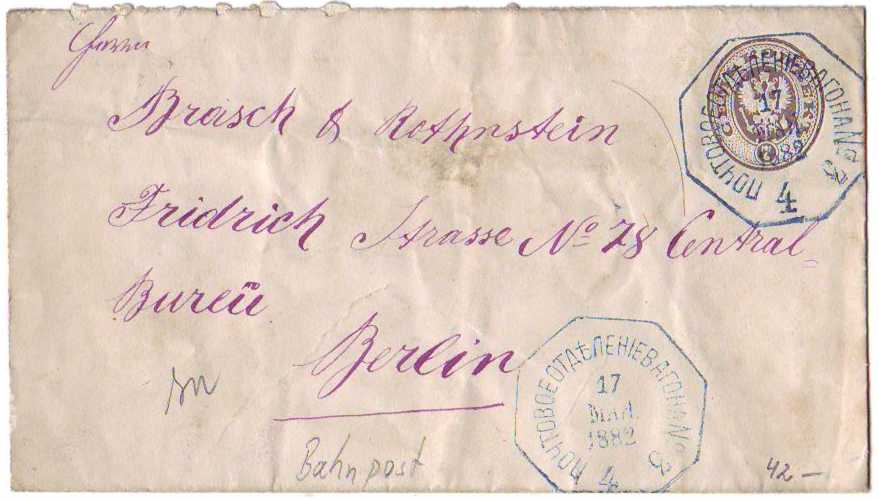 Herrn
Brasch & Rothnstein
Fridrich Strasse No 78 Central-
Bureü
Berlin
Bahnpost
42 —
ПОЧТОВОЕ ОТДѢЛЕНІЕ ВАГОНА № 3
17
1882
4
ПОЧТОВОЕ ОТДѢЛЕНІЕ ВАГОНА № 3
17
МАЯ
1882
4